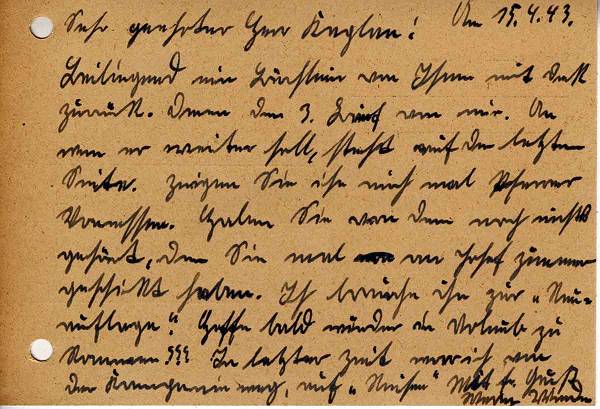 Sehr geehrter Herr Kaplan! Am 15.4.43.
Beiliegend ein Büchlein von Ihnen mit Dank
zurück. Dann den 3. Brief von mir. An
wem er weiter soll, steht auf der letzten
Seite. Zeigen Sie ihn auch mal Pfarrer
Haben Sie von dem noch nichts
gehört, den Sie mal an Josef Zimmer
geschickt haben. Ich brauche ihn zur „Neu-
auflage“. Hoffe bald wieder in Urlaub zu
kommen??? In letzter Zeit war ich von
der Kompanie weg, auf „Reisen“ Mit fr. Gruß